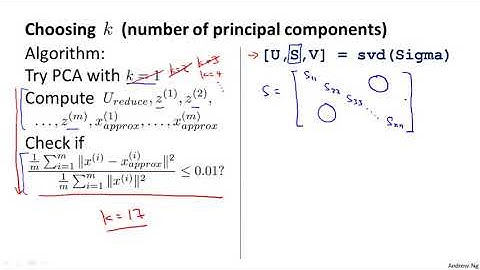 Choosing k (number of principal components)
Algorithm:
Try PCA with k = 1 k=2 k=3
k=4
Compute U_reduce, z^(1), z^(2),
..., z^(m), x_approx^(1), ..., x_approx^(m)
Check if
\frac{\frac{1}{m} \sum_{i=1}^{m} \|x^{(i)} - x_{approx}^{(i)}\|^2}{\frac{1}{m} \sum_{i=1}^{m} \|x^{(i)}\|^2} ≤ 0.01?
k=17
→ [U,S,V] = svd(Sigma)
S = [ S11 S22 S33 ... Snn ]
Andrew Ng